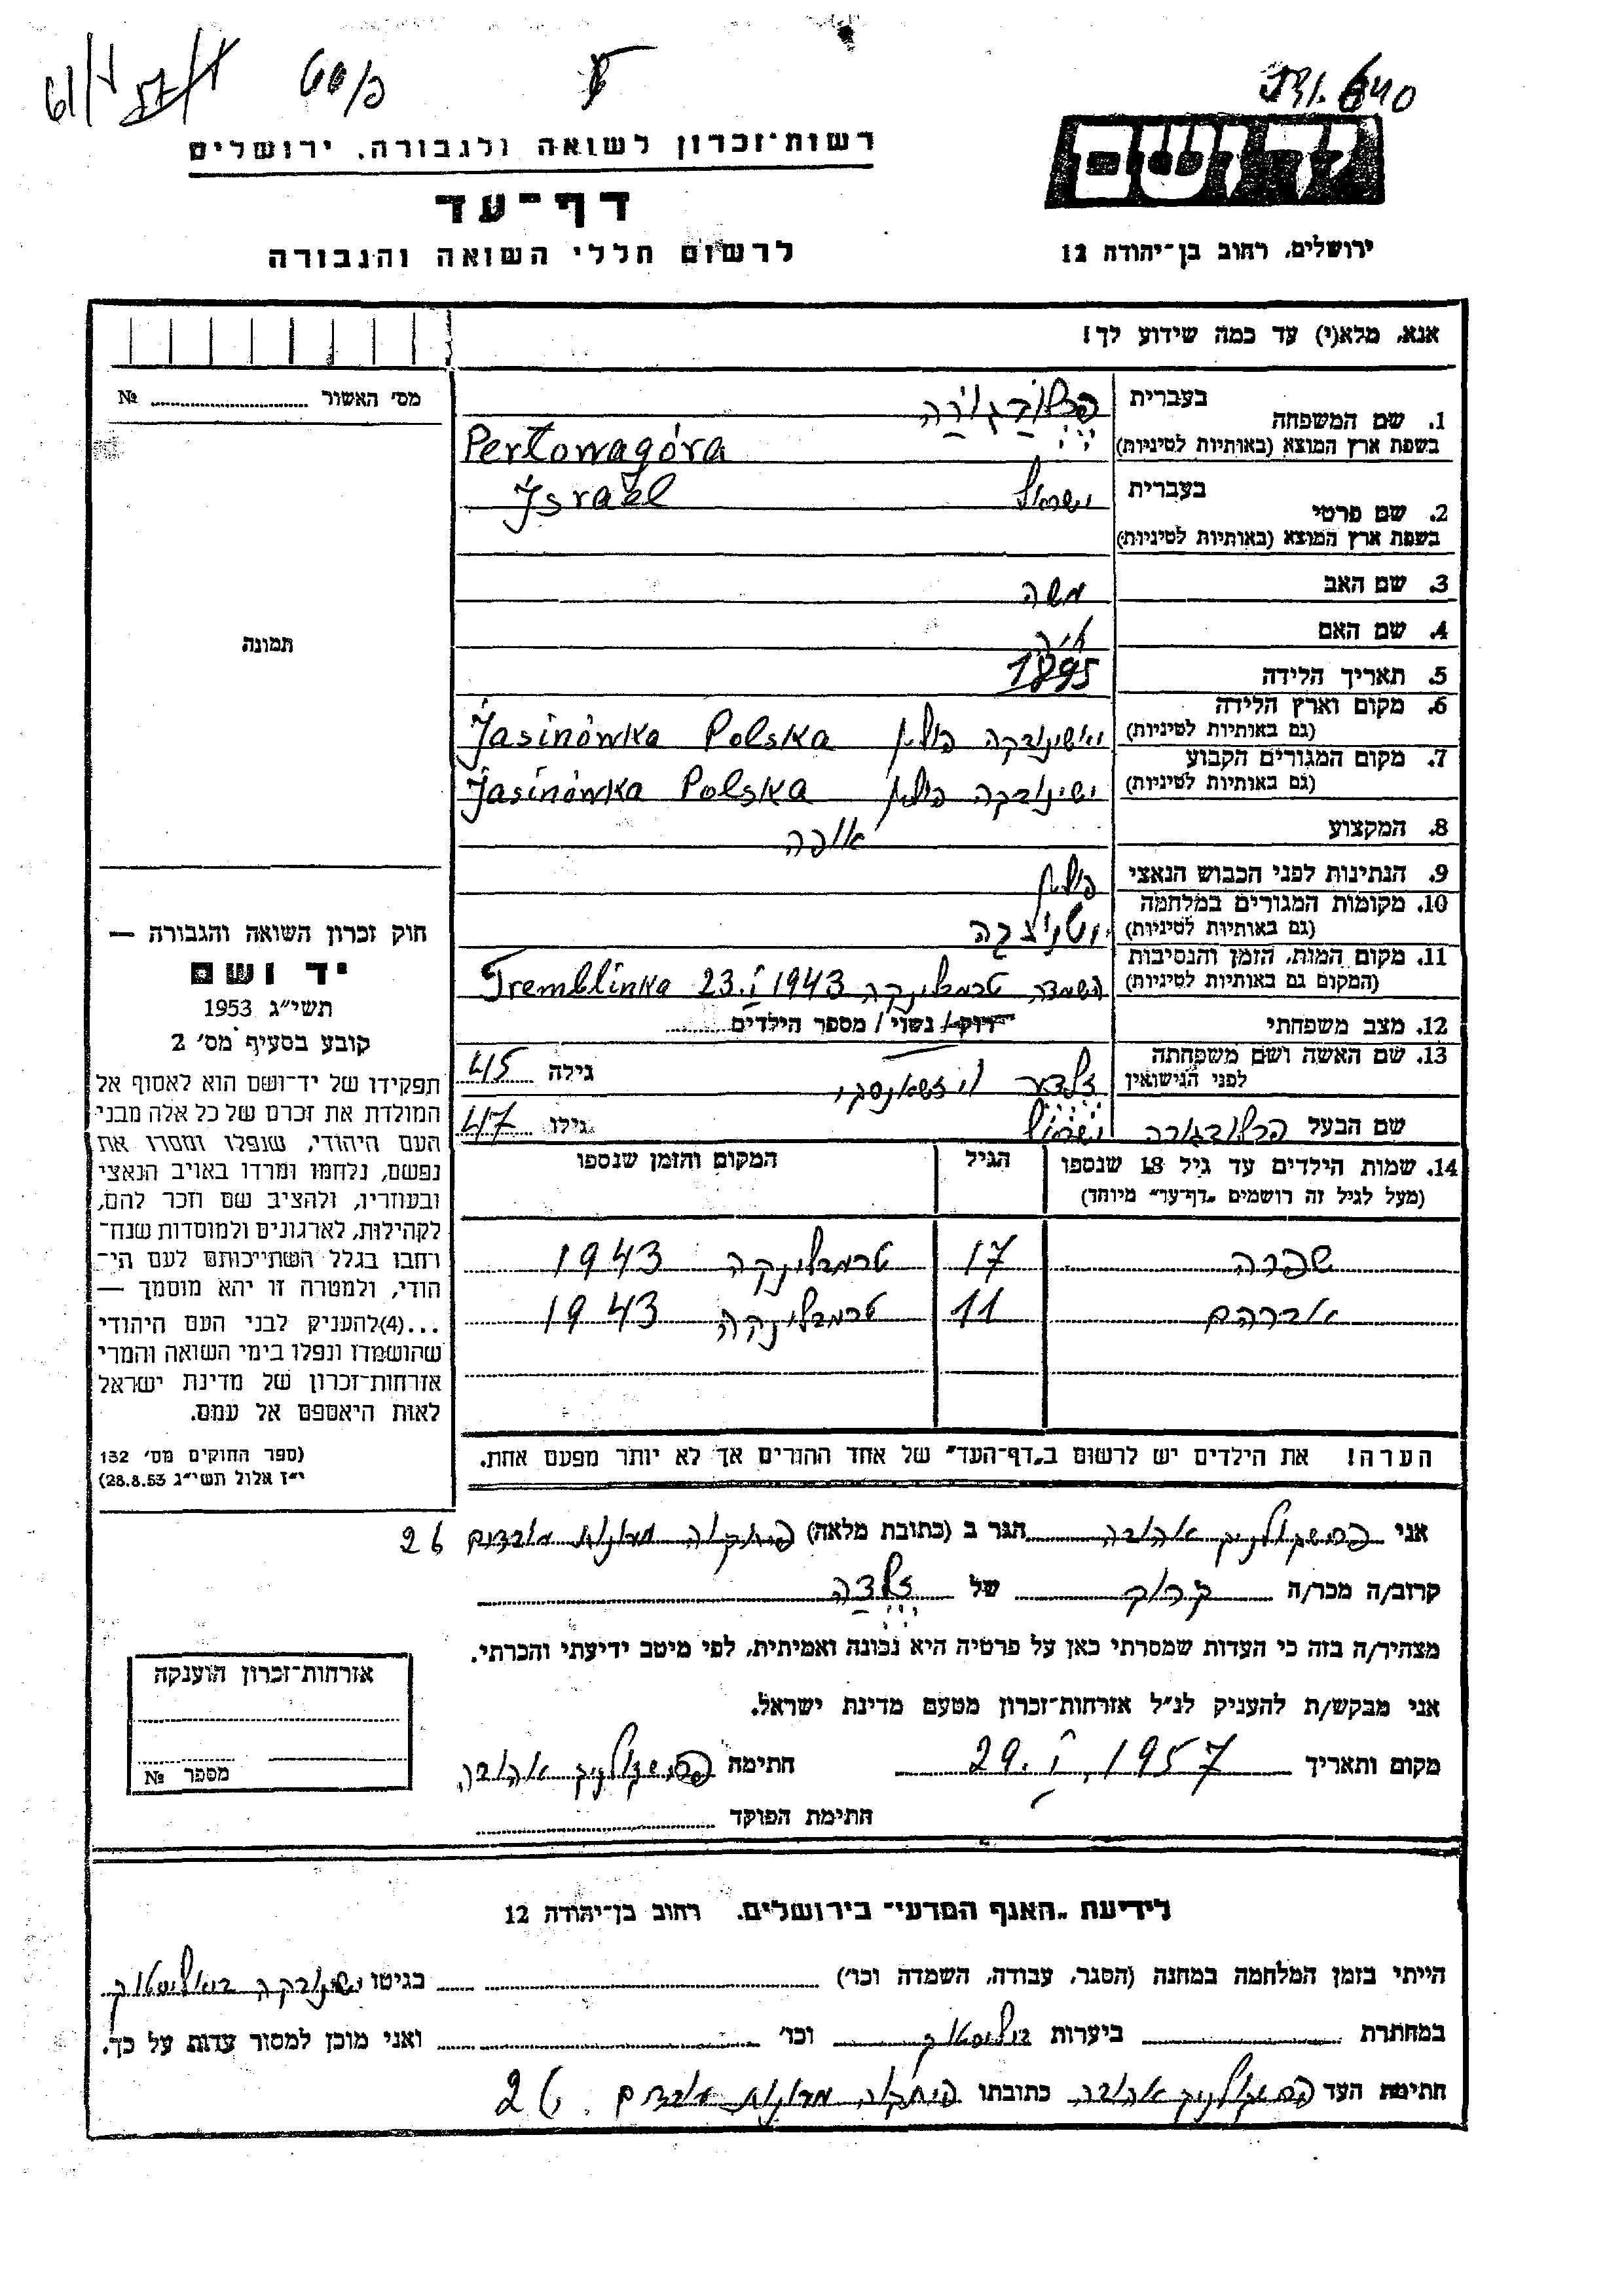 רשות־זכרון לשואה ולגבורה, ירושלים
דף־עד
לרשום חללי השואה והגבורה
יד ושם
ירושלים, רחוב בן־יהודה 12
אנא, מלא(י) עד כמה שידוע לך!
מס׳ האשור № 
תמונה
1. שם המשפחה
בעברית
בשפת ארץ המוצא (באותיות לטיניות) Perłowagóra
2. שם פרטי
בעברית ישראל Jsrael
בשפת ארץ המוצא (באותיות לטיניות)
3. שם האב משה
4. שם האם
5. תאריך הלידה 1895
6. מקום וארץ הלידה
(גם באותיות לטיניות) פולין Jasinówka Polska
7. מקום המגורים הקבוע
(גם באותיות לטיניות) ישינובקה פולין Jasinówka Polska
8. המקצוע אופה
9. הנתינות לפני הכבוש הנאצי פולין
10. מקומות המגורים במלחמה
(גם באותיות לטיניות)
11. מקום המות, הזמן והנסיבות
(המקום גם באותיות לטיניות) השמדה טרמבלינקה Tremblinka 23.I 1943
12. מצב משפחתי רוק/ נשוי/ מספר הילדים
13. שם האשה ושם משפחתה
לפני הנישואין זלדה גילה 45
שם הבעל ישראל גילו 47
14. שמות הילדים עד גיל 18 שנספו
(מעל לגיל זה רושמים „דף־עד״ מיוחד)
הגיל
המקום והזמן שנספו
שפרה 17 טרמבלינקה 1943
אברהם 11 טרמבלינקה 1943
הערה! את הילדים יש לרשום ב„דף־העד״ של אחד ההורים אך לא יותר מפעם אחת.
חוק זכרון השואה והגבורה —
יד ושם
תשי״ג 1953
קובע בסעיף מס׳ 2
תפקידו של יד־ושם הוא לאסוף אל
המולדת את זכרם של כל אלה מבני
העם היהודי, שנפלו ומסרו את
נפשם, נלחמו ומרדו באויב הנאצי
ובעוזריו, ולהציב שם וזכר להם,
לקהילות, לארגונים ולמוסדות שנח־
רחבו בגלל השתייכותם לעם הי־
הודי, ולמטרה זו יהא מוסמך —
...(4) להעניק לבני העם היהודי
שהושמדו ונפלו בימי השואה והמרי
אזרחות־זכרון של מדינת ישראל
לאות היאספם אל עמם.
(ספר החוקים מס׳ 132
י״ז אלול תשי״ג 28.8.53)
אני אהובה הגר ב (כתובת מלאה) 26
קרוב/ה מכר/ה קרוב של זלדה
מצהיר/ה בזה כי העדות שמסרתי כאן על פרטיה היא נכונה ואמיתית, לפי מיטב ידיעתי והכרתי.
אני מבקש/ת להעניק לנ״ל אזרחות־זכרון מטעם מדינת ישראל.
מקום ותאריך 29.I.1957 חתימה אהובה
חתימת הפוקד
אזרחות־זכרון הוענקה
מספר №
לידיעת „האגף המדעי״ בירושלים, רחוב בן־יהודה 12
הייתי בזמן המלחמה במחנה (הסגר, עבודה, השמדה וכו׳) בגיטו ישינובקה ביאליסטוק
במחתרת ביערות ביאליסטוק וכו׳ ואני מוכן למסור עדות על כך.
חתימת העד אהובה כתובתו 26